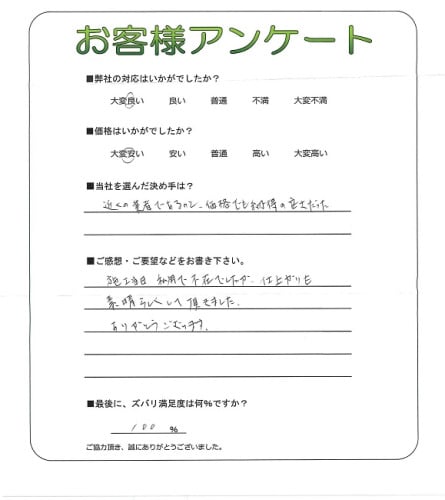 お客様アンケート
■弊社の対応はいかがでしたか？
大変良い 良い 普通 不満 大変不満
■価格はいかがでしたか？
大変安い 安い 普通 高い 大変高い
■当社を選んだ決め手は？
近くの業者であるのと、価格でも納得の立だった
■ご感想・ご要望などをお書き下さい。
施工当日 私用で不在でしたが、仕上がりも
素晴らしくして頂きました。
ありがとうございます。
■最後に、ズバリ満足度は何%ですか？
100 %
ご協力頂き、誠にありがとうございました。